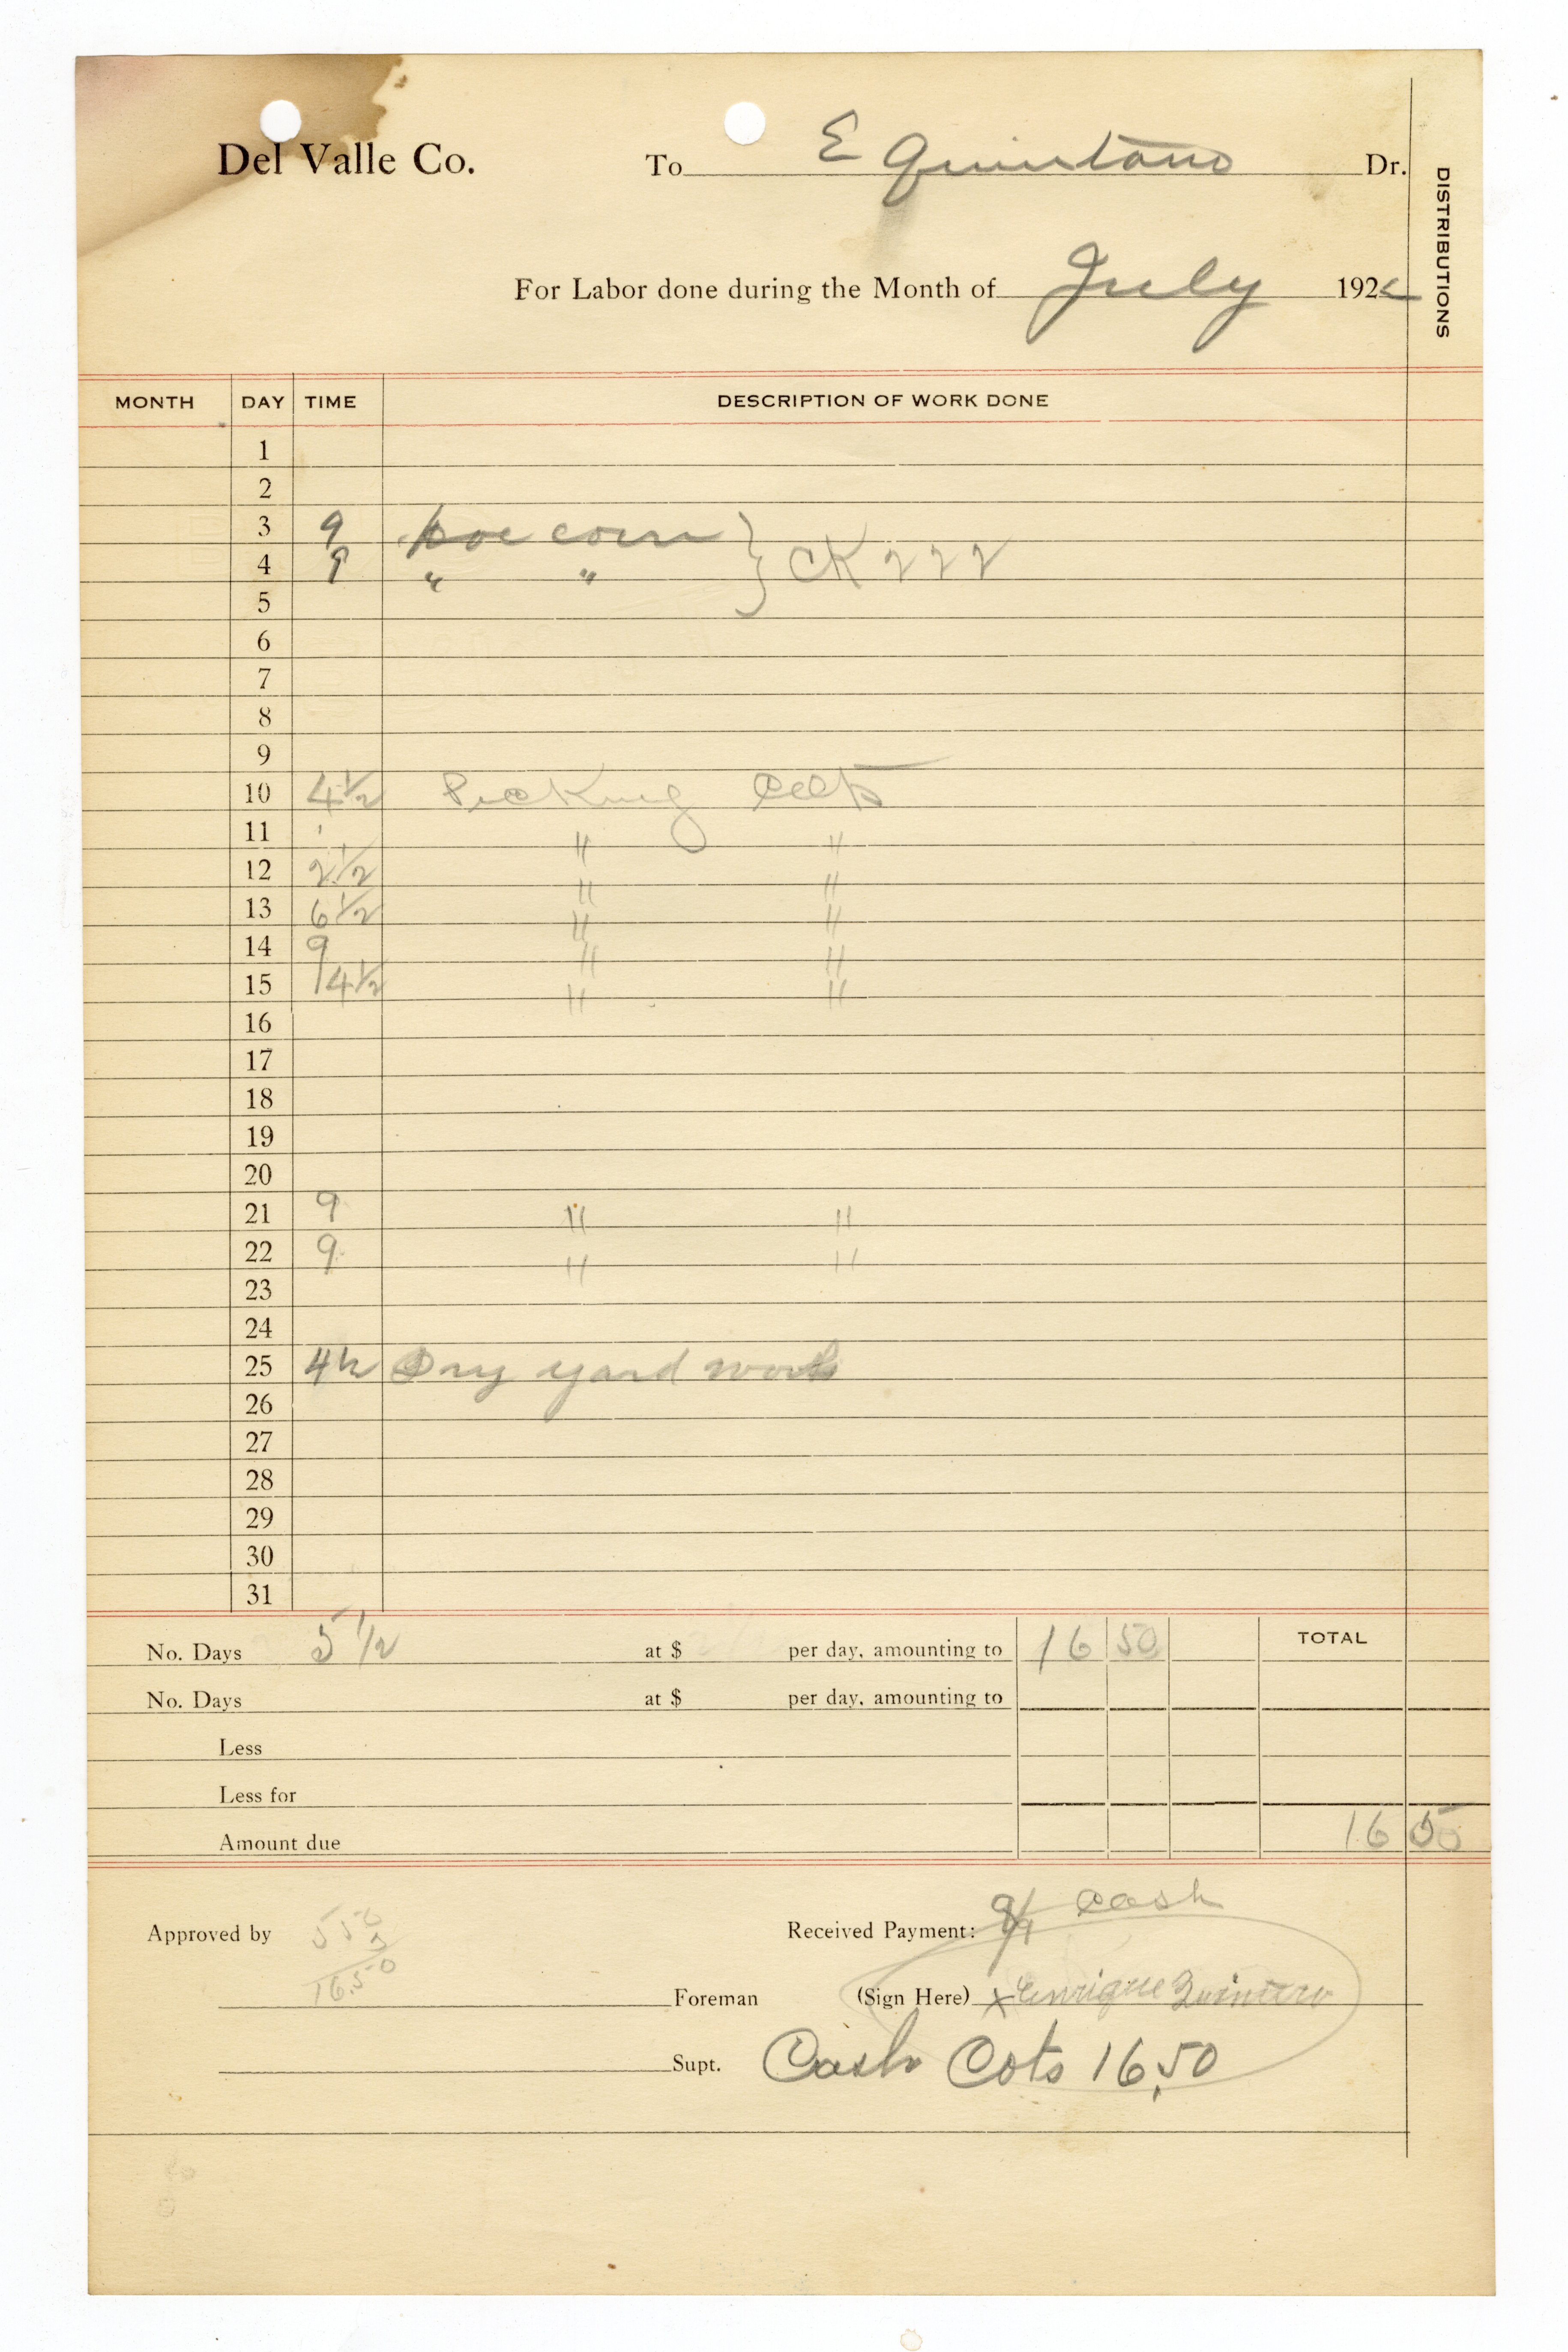 Del Valle Co. To E Quintano Dr.
DISTRIBUTIONS
For Labor done during the Month of July 1922
MONTH DAY TIME DESCRIPTION OF WORK DONE
1
2
3 9 hoe corn } CK 222
4 9 " "
5
6
7
8
9
10 4 1/2 Picking Cots
11 " "
12 2 1/2 " "
13 6 1/2 " "
14 9 " "
15 4 1/2 " "
16
17
18
19
20
21 9 " "
22 9 " "
23
24
25 4 1/2 Dry yard work
26
27
28
29
30
31
No. Days 5 1/2 at $ per day, amounting to 16 50 TOTAL
No. Days at $ per day, amounting to
Less
Less for
Amount due 16 50
Approved by 550 Received Payment: 9/1 Cash
3
16.50
Foreman (Sign Here) x Enrique Quintero
Supt. Cash Cots 16.50